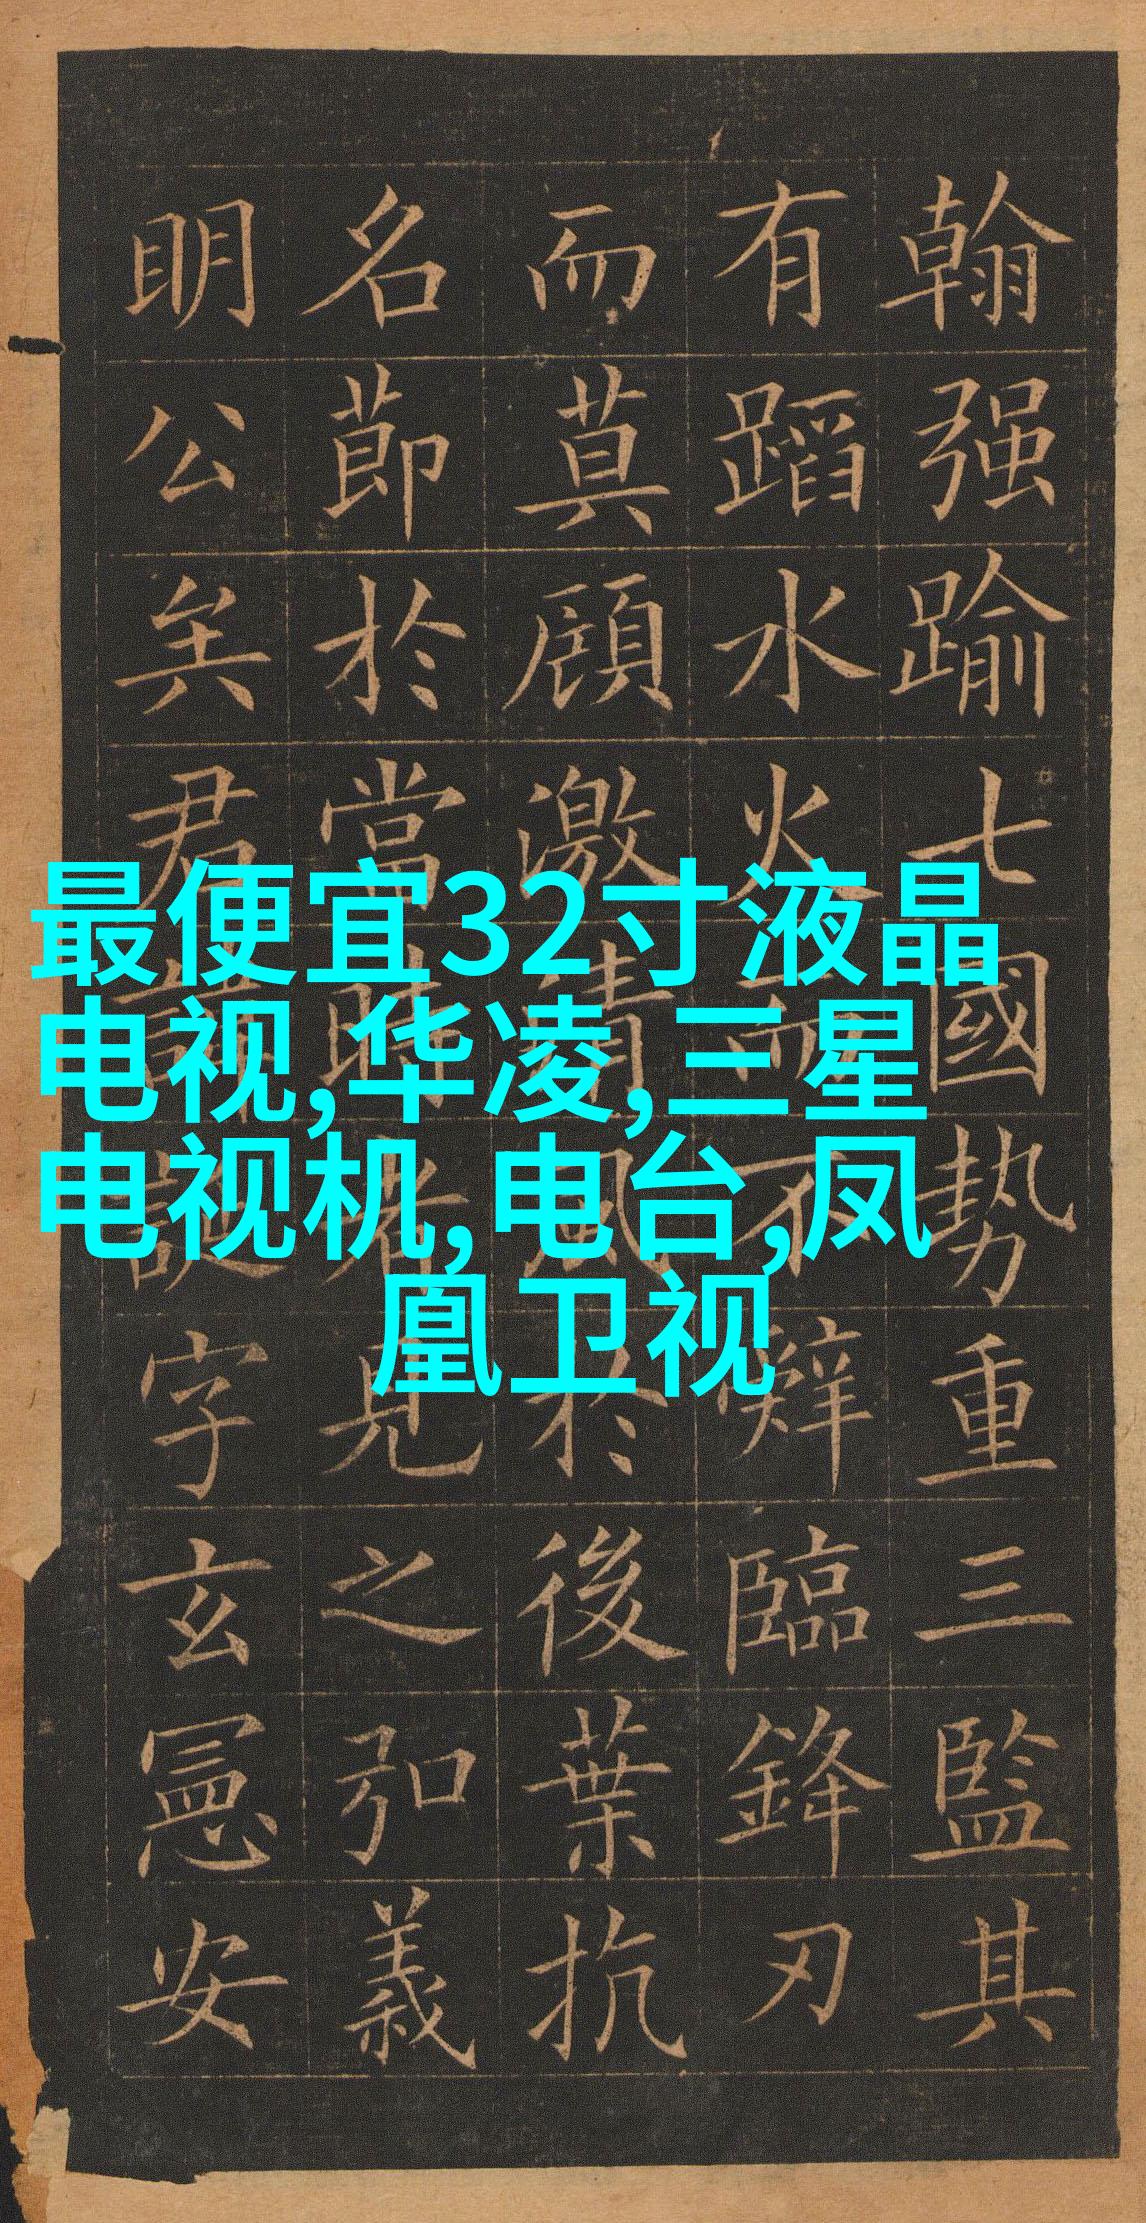 最便宜32寸液晶
电视,华凌,三星
电视机,电台,凤
凰卫视
翰强踰七國勢重三監其
有蹈水火而不辭臨鋒刃
而莫顧激清風於後葉抗
名莭於當時者見之弘義
明公矣君諱誕字玄憲安